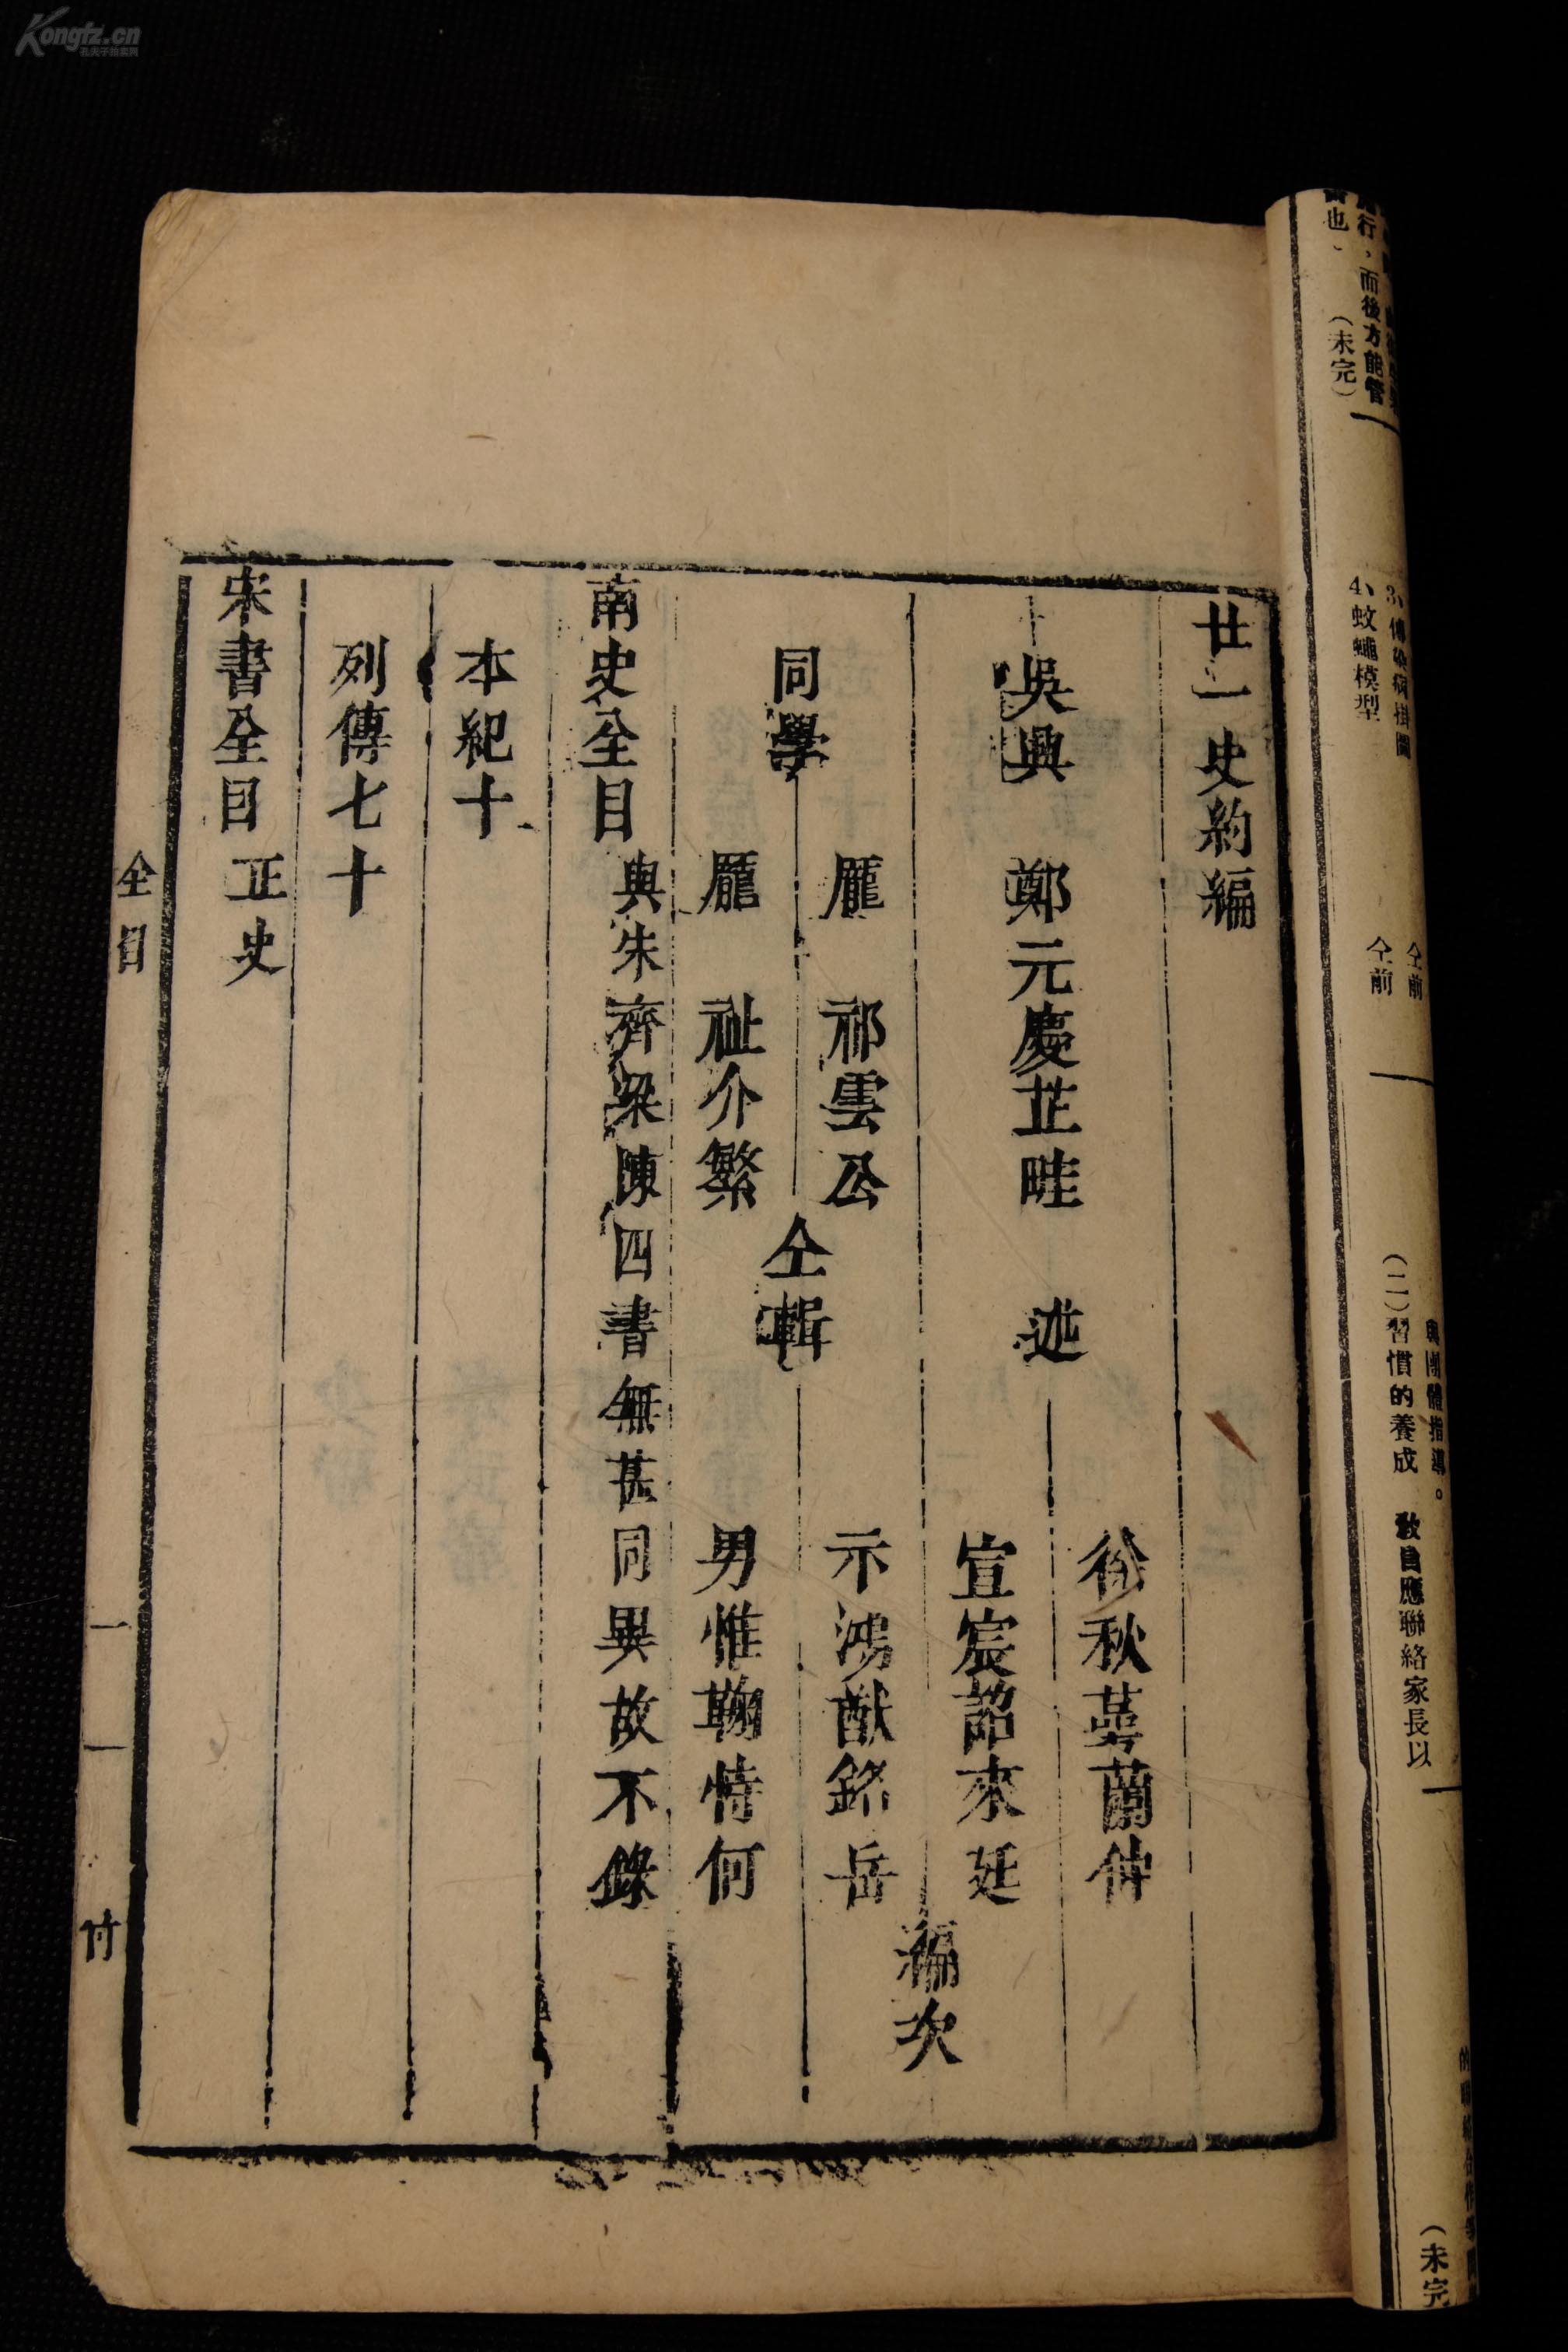 廿一史約編
吳興 鄭元慶芷畦 述
徐秋蕚蘭伸
宣宸詔來廷
示鴻猷銘岳
男惟鞠恃何
編次
同學
龎 祁雲公
龎 祉介繁
仝輯
南史全目
與宋齊梁陳四書無甚同異故不錄
本紀十
列傳七十
宋書全目 正史
全目
一
付
行，而後方能管
也、
（未完）
4、蚊蠅模型
3、傳染病掛圖
仝前
仝前
與團體指導。
（二）習慣的養成
教員應聯絡家長以
（未完
Kongfz.cn
孔夫子拍卖网